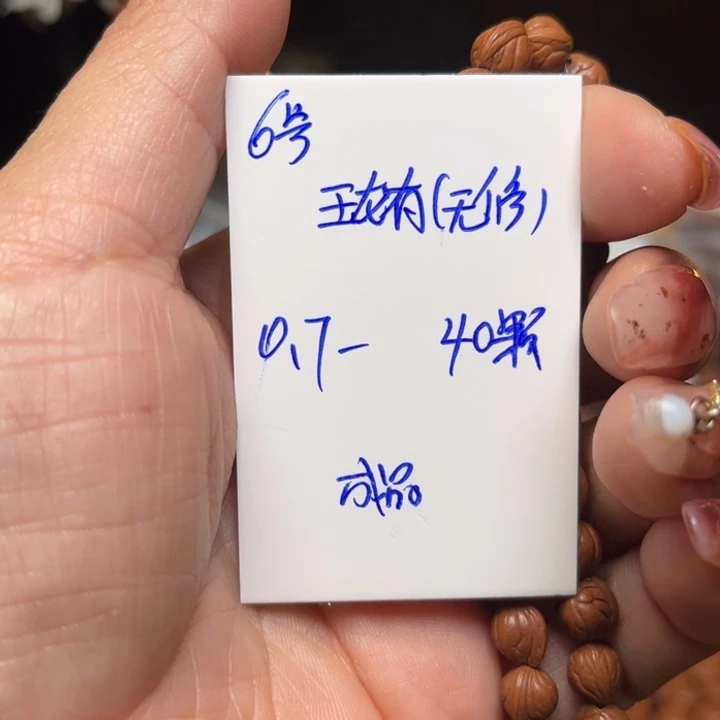 6号
王龙有(无修)
0.7- 40颗
成品